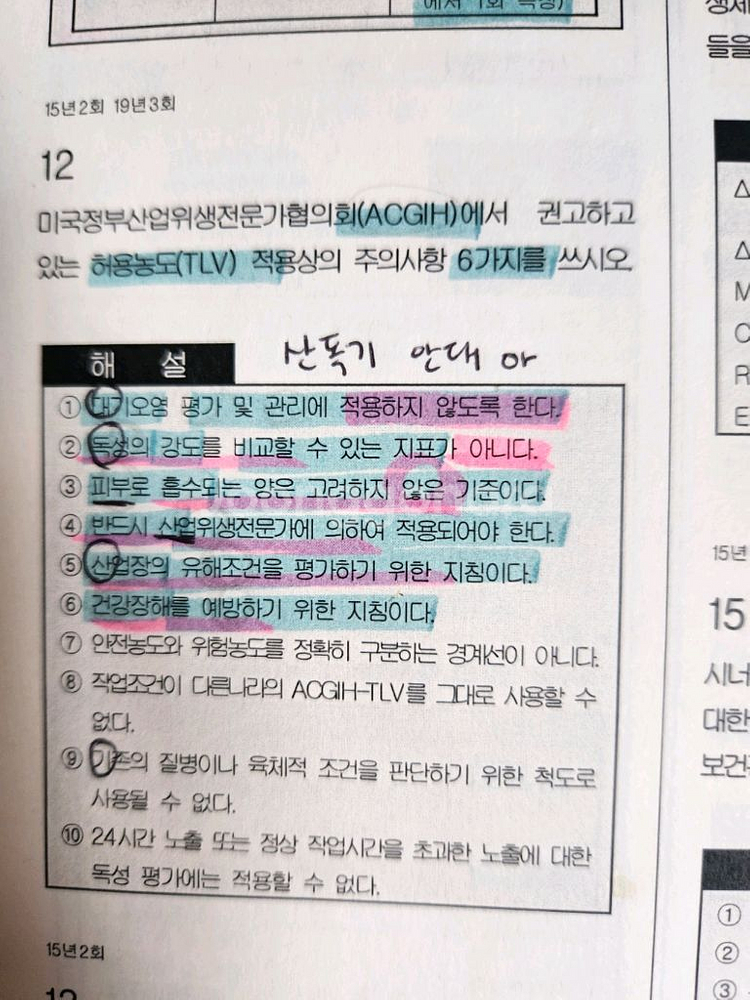 에서 1회 측정)
15년2회 19년3회
12
미국정부산업위생전문가협의회(ACGIH)에서 권고하고
있는 허용농도(TLV) 적용상의 주의사항 6가지를 쓰시오.
해 설
산독기 안대 아
① 대기오염 평가 및 관리에 적용하지 않도록 한다.
② 독성의 강도를 비교할 수 있는 지표가 아니다.
③ 피부로 흡수되는 양은 고려하지 않은 기준이다.
④ 반드시 산업위생전문가에 의하여 적용되어야 한다.
⑤ 산업장의 유해조건을 평가하기 위한 지침이다.
⑥ 건강장해를 예방하기 위한 지침이다.
⑦ 안전농도와 위험농도를 정확히 구분하는 경계선이 아니다.
⑧ 작업조건이 다른나라의 ACGIH-TLV를 그대로 사용할 수
없다.
⑨ 기존의 질병이나 육체적 조건을 판단하기 위한 척도로
사용될 수 없다.
⑩ 24시간 노출 또는 정상 작업시간을 초과한 노출에 대한
독성 평가에는 적용할 수 없다.
15년2회
들을
M
C
R
E
15년
15
시너
대한
보건
①
②
③